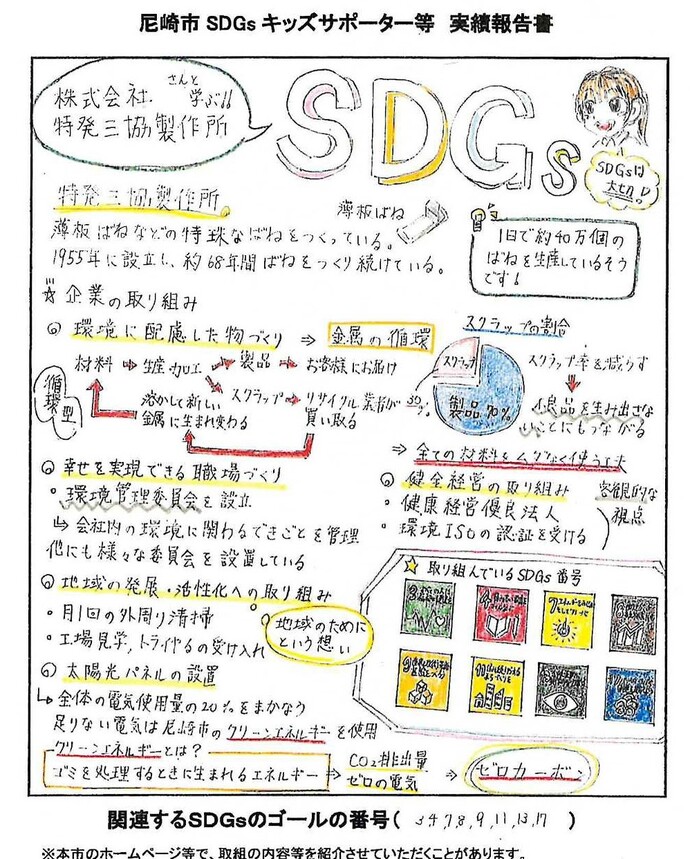 尼崎市 SDGs キッズサポーター等　実績報告書
株式会社 さんと学ぶ!!
特発三協製作所
SDGs
SDGsは
大切!!
特発三協製作所
薄板ばね
薄板ばねなどの特殊なばねをつくっている。
1955年に設立し、約68年間ばねをつくり続けている。
1日で約40万個の
ばねを生産しているそう
です!
☆企業の取り組み
◎環境に配慮した物づくり ⇒ 金属の循環
材料 → 生産加工 → 製品 → お客様にお届け
スクラップ → リサイクル業者が
買い取る
溶かして新しい
金属に生まれ変わる
循環型
スクラップの割合
スクラップ
30%
製品 70%
スクラップ率を減らす
不良品を生み出さな
いことにもつながる
⇒ 全ての材料をムダなく使う工夫
◎幸せを実現できる職場づくり
・環境管理委員会を設立
↳ 会社内の環境に関わるできごとを管理
他にも様々な委員会を設置している
◎健全経営の取り組み
・健康経営優良法人
・環境ISOの認証を受ける
客観的な
視点
◎地域の発展・活性化への取り組み
・月1回の外周り清掃
・工場見学,トライやるの受け入れ
地域のために
という想い
☆取り組んでいるSDGs番号
◎太陽光パネルの設置
↳ 全体の電気使用量の20%をまかなう
足りない電気は尼崎市のグリーンエネルギーを使用
グリーンエネルギーとは?
ゴミを処理するときに生まれるエネルギー → CO2排出量
ゼロの電気 ⇒ ゼロカーボン
関連するSDGsのゴールの番号( 3 4,7,8,9,11,13,17 )
※本市のホームページ等で、取組の内容等を紹介させていただくことがあります。